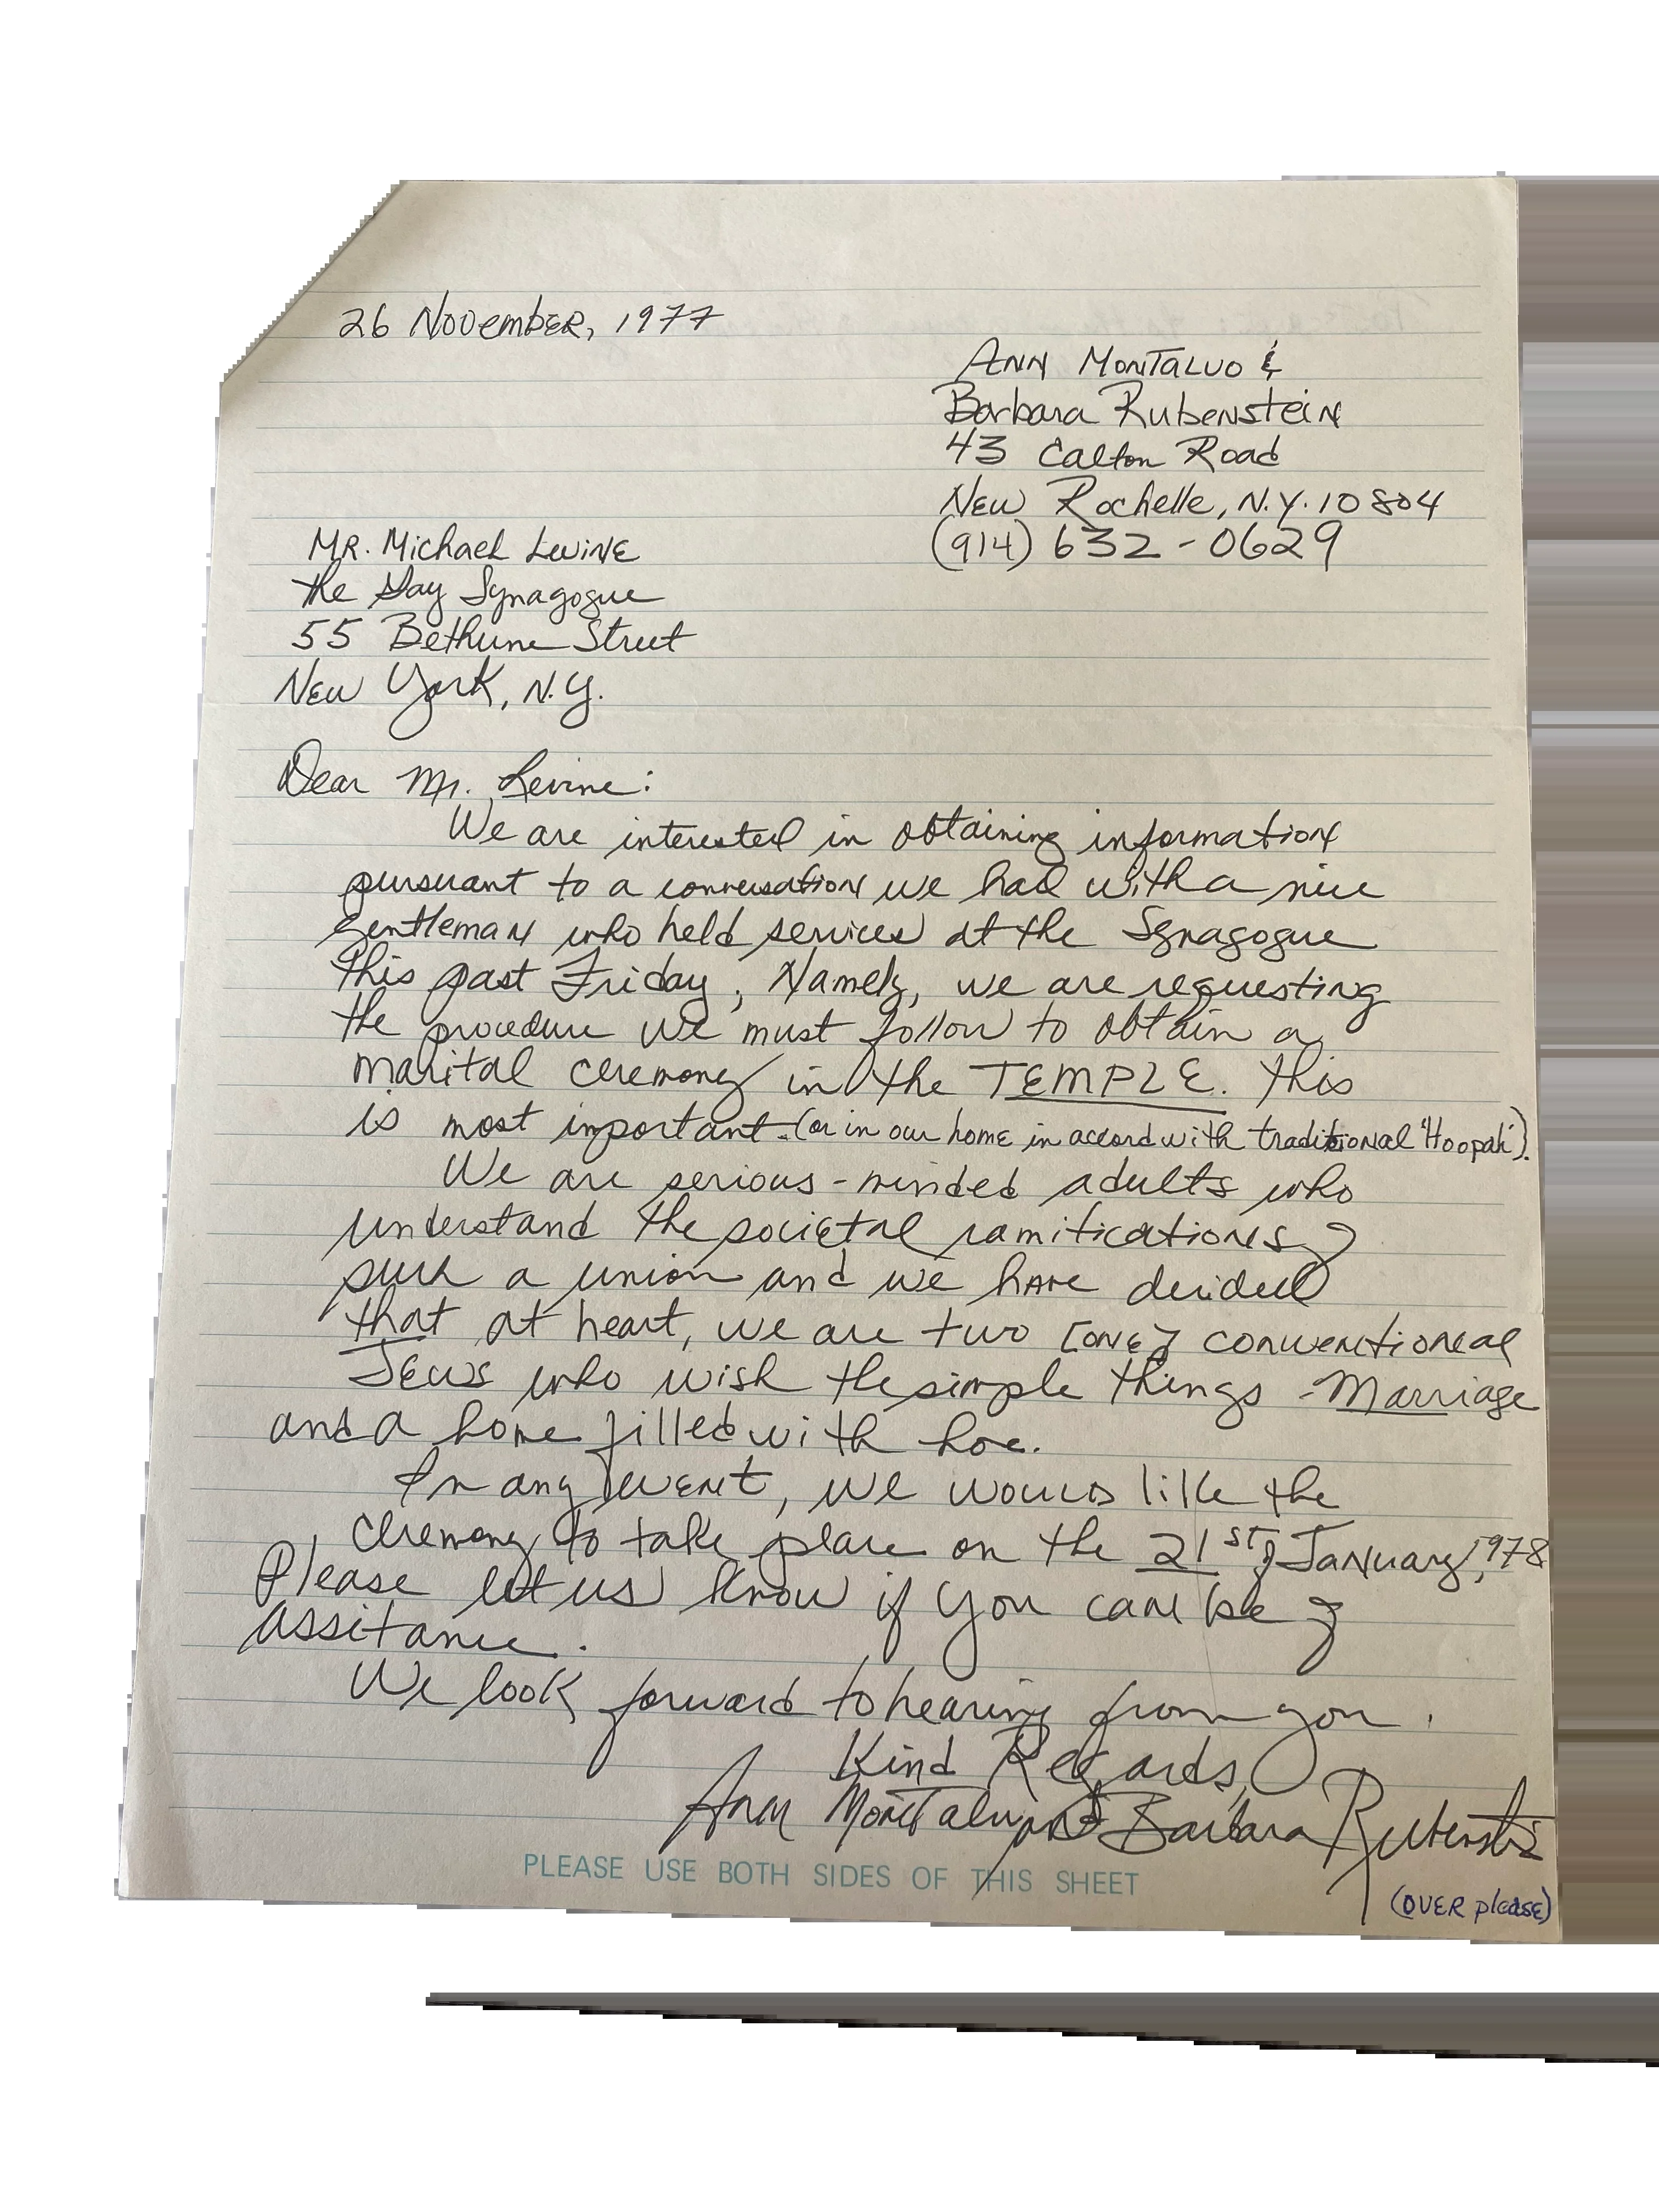 26 November, 1977
Ann Montalvo &
Barbara Rubenstein
43 Calton Road
New Rochelle, N.Y. 10804
(914) 632-0629
Mr. Michael Levine
the Gay Synagogue
55 Bethune Street
New York, N.Y.
Dear Mr. Levine:
We are interested in obtaining information
pursuant to a conversation we had with a nice
gentleman who held services at the Synagogue
this past Friday; Namely, we are requesting
the procedure we must follow to obtain a
marital ceremony in the TEMPLE. this
is most important. (or in our home in accord with traditional 'Hoopah').
We are serious-minded adults who
understand the societal ramifications of
such a union and we have decided
that at heart, we are two [one] conventional
Jews who wish the simple things - Marriage
and a home filled with love.
In any event, we would like the
ceremony to take place on the 21st of January, 1978
Please let us know if you can be of
assitance.
We look forward to hearing from you.
Kind Regards,
Ann Montalvo and Barbara Rubenstein
PLEASE USE BOTH SIDES OF THIS SHEET
(OVER please)